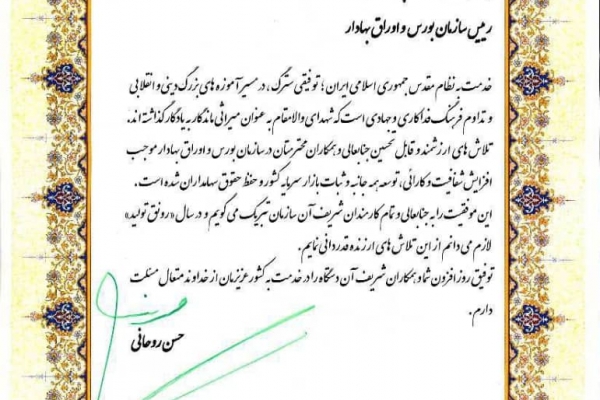 رییس سازمان بورس و اوراق بهادار
خدمت به نظام مقدس جمهوری اسلامی ایران؛ توفیقی سترگ، در مسیر آموزه های بزرگ دینی و انقلابی
و تداوم فرهنگ فداکاری و جهادی است که شهدای والامقام به عنوان میراثی ماندگار به یادگار گذاشته اند.
تلاش های ارزشمند و قابل تحسین جنابعالی و همکاران محترمتان در سازمان بورس و اوراق بهادار موجب
افزایش شفافیت و کارائی، توسعه همه جانبه و ثبات بازار سرمایه کشور و حفظ حقوق سهامداران شده است.
این موفقیت را به جنابعالی و تمام کارمندان شریف آن سازمان تبریک می گویم و در سال «رونق تولید»
لازم می دانم از این تلاش های ارزنده قدردانی نمایم.
توفیق روزافزون شما و همکاران شریف آن دستگاه را در خدمت به کشور عزیزمان از خداوند متعال مسئلت
دارم.
حسن روحانی